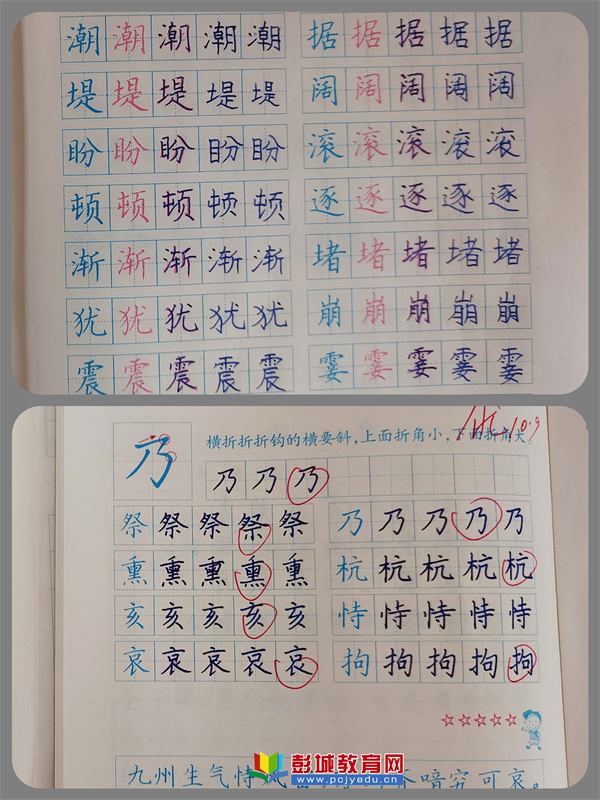 潮 潮 潮 潮 潮 据 据 据 据 据
堤 堤 堤 堤 堤 阔 阔 阔 阔 阔
盼 盼 盼 盼 盼 滚 滚 滚 滚 滚
顿 顿 顿 顿 顿 逐 逐 逐 逐 逐
渐 渐 渐 渐 渐 堵 堵 堵 堵 堵
犹 犹 犹 犹 犹 崩 崩 崩 崩 崩
震 震 震 震 震 霎 霎 霎 霎 霎
10.9
乃 横折折折钩的横要斜,上面折角小,下面折角大
乃 乃 乃
祭 祭 祭 祭 祭 乃 乃 乃 乃 乃
熏 熏 熏 熏 熏 杭 杭 杭 杭 杭
亥 亥 亥 亥 亥 恃 恃 恃 恃 恃
哀 哀 哀 哀 哀 拘 拘 拘 拘 拘
九州生气恃风 喑穷可哀。
彭城教育网
www.pcjyedu.cn